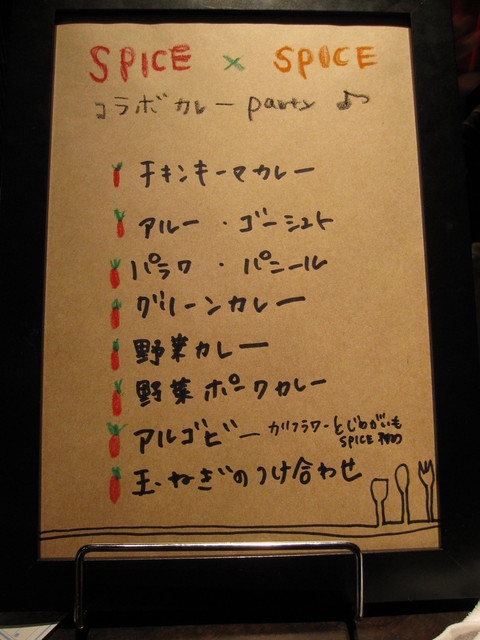 SPICE × SPICE
コラボカレー party ♪
チキンキーマカレー
アルー・ゴーシュト
パラワ・パニール
グリーンカレー
野菜カレー
野菜ポークカレー
アルゴビー カリフラワーとじゃがいも
SPICE
玉ねぎのつけ合わせ